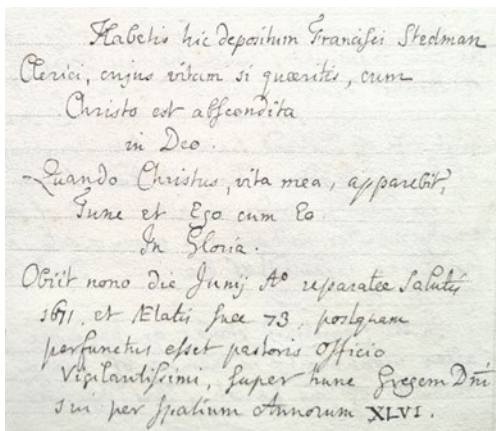 Habetis hic depositum Francisci Stedman
Clerici, cujus vitam si quæritis, cum
Christo est abscondita
in Deo.
Quando Christus, vita mea, apparebit,
Tunc et Ego cum Eo
In Gloria.
Obiit nono die Junij Aº reparatæ Salutis
1671, et Ætatis suæ 73, postquam
perfunctus esset pastoris officio
Vigilantissimi, super hunc Gregem Dñi
sui per spatium Annorum XLVI.